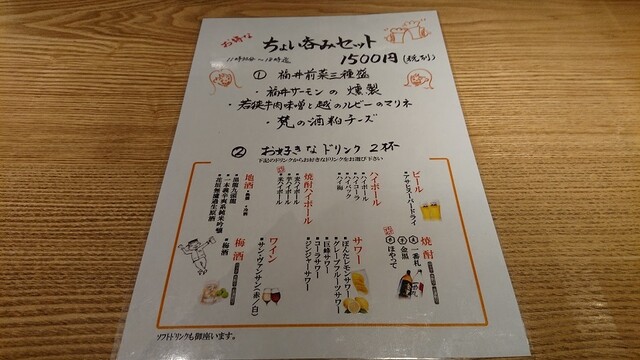 お得な
ちょい呑みセット
1500円(税別)
① 福井前菜三種盛
・福井サーモンの燻製
・若狭牛肉味噌と越のルビーのマリネ
・梵の酒粕チーズ
② お好きなドリンク2杯
下記のドリンクからお好きなドリンクをお選び下さい
ビール
・アサヒスーパードライ
ハイボール
・ハイボール
・ハイコーラ
・ハイバック
・ハイ梅
焼酎ハイボール
・麦ハイボール
・芋ハイボール
・米ハイボール
地酒
・一本義辛爽系純米吟醸
・花垣無濾過生原酒
焼酎
一番札
金黒
ほやって
サワー
・ぽんたんレモンサワー
・グレープフルーツサワー
・巨峰サワー
・コーラサワー
・ジンジャーサワー
ワイン
・サン・ヴァンサン(赤/白)
梅酒
・梅酒
ソフトドリンクも御座います。